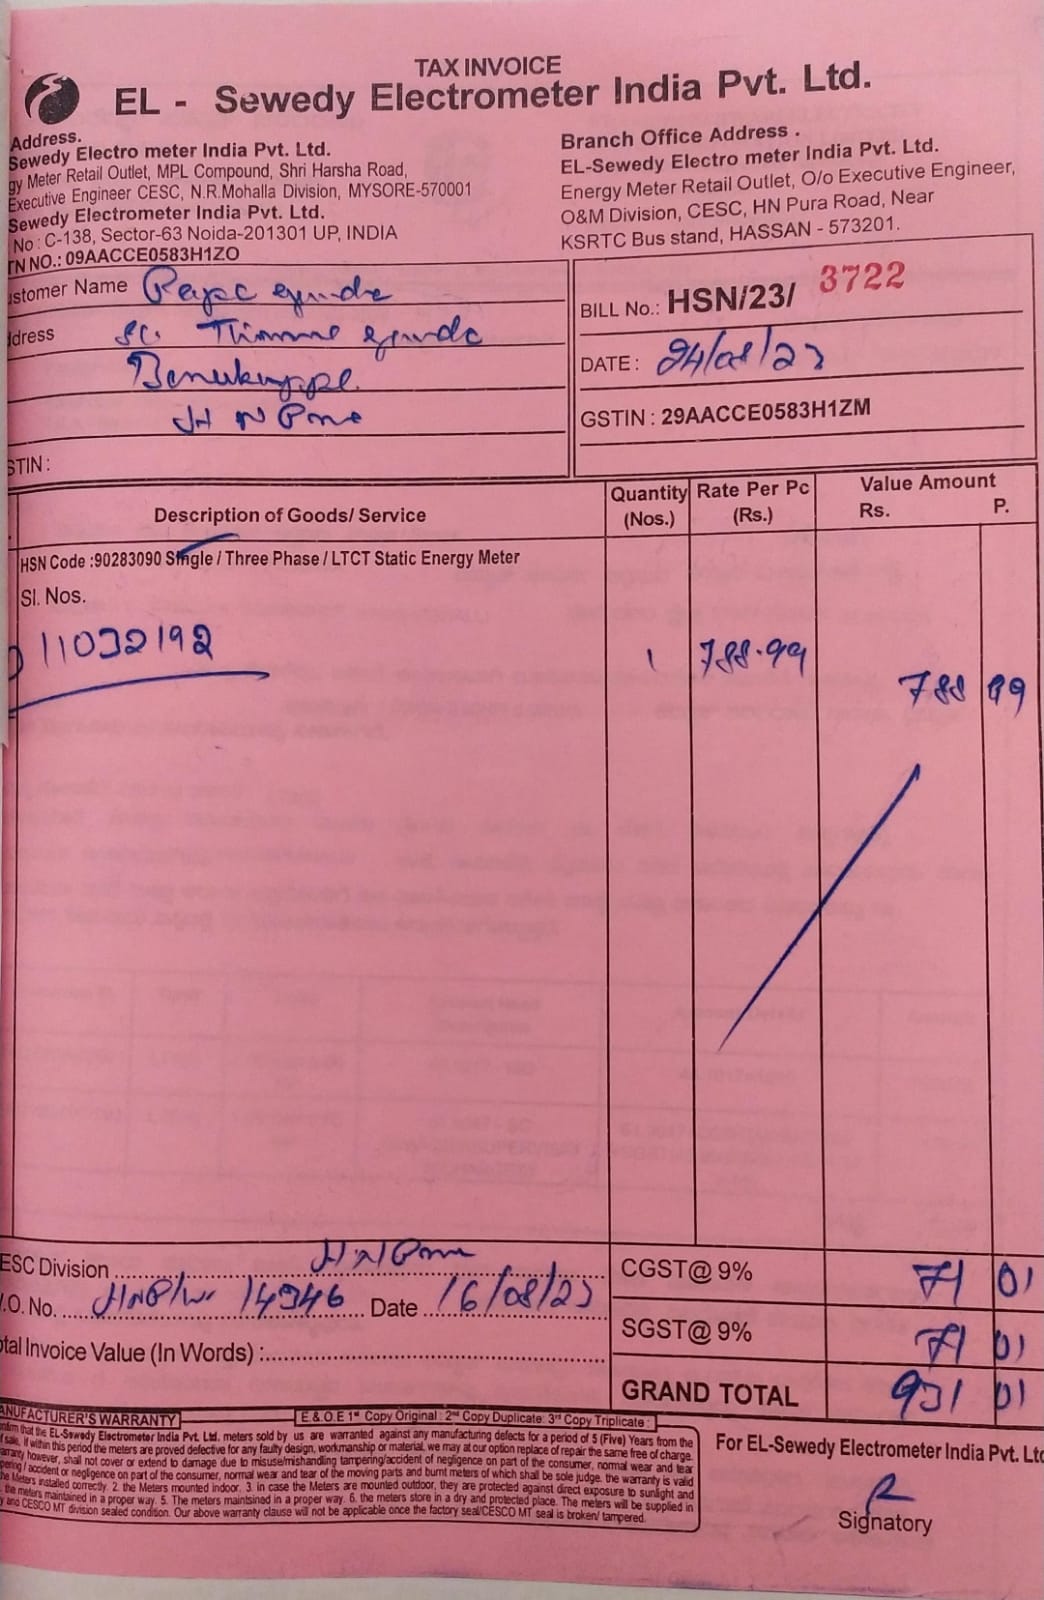 TAX INVOICE
EL - Sewedy Electrometer India Pvt. Ltd.
Address.
Sewedy Electro meter India Pvt. Ltd.
gy Meter Retail Outlet, MPL Compound, Shri Harsha Road,
Executive Engineer CESC, N.R.Mohalla Division, MYSORE-570001
Sewedy Electrometer India Pvt. Ltd.
No : C-138, Sector-63 Noida-201301 UP, INDIA
TN NO.: 09AACCE0583H1ZO
Branch Office Address .
EL-Sewedy Electro meter India Pvt. Ltd.
Energy Meter Retail Outlet, O/o Executive Engineer,
O&M Division, CESC, HN Pura Road, Near
KSRTC Bus stand, HASSAN - 573201.
ustomer Name
dress
H N
STIN :
BILL No.: HSN/23/ 3722
DATE : 24/08/23
GSTIN : 29AACCE0583H1ZM
Description of Goods/ Service
Quantity (Nos.)
Rate Per Pc (Rs.)
Value Amount
Rs. P.
HSN Code :90283090 Single / Three Phase / LTCT Static Energy Meter
Sl. Nos.
11032192 1 788.99 788 99
ESC Division
.O. No. 14946 Date 16/08/23
tal Invoice Value (In Words) :
CGST@ 9% 71 01
SGST@ 9% 71 01
GRAND TOTAL 931 01
ANUFACTURER'S WARRANTY
E & O.E 1st Copy Original : 2nd Copy Duplicate: 3rd Copy Triplicate :
nfirm that the EL-Sewedy Electrometer India Pvt. Ltd. meters sold by us are warranted against any manufacturing defects for a period of 5 (Five) Years from the
f sale, if within this period the meters are proved defective for any faulty design, workmanship or material, we may at our option replace of repair the same free of charge.
arranty however, shall not cover or extend to damage due to misuse/mishandling tampering/accident of negligence on part of the consumer, normal wear and tear
pering / accident or negligence on part of the consumer, normal wear and tear of the moving parts and burnt meters of which shall be sole judge. the warranty is valid
he Meters installed correctly. 2. the Meters mounted indoor. 3. in case the Meters are mounted outdoor, they are protected against direct exposure to sunlight and
. the meters maintained in a proper way. 5. The meters maintsined in a proper way. 6. the meters store in a dry and protected place. The meters will be supplied in
y and CESCO MT division sealed condition. Our above warranty clause will not be applicable once the factory seal/CESCO MT seal is broken/ tampered.
For EL-Sewedy Electrometer India Pvt. Ltd
Signatory